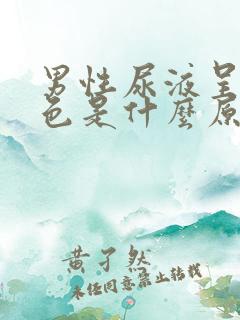 男性尿液呈
色是什麼原
黄子然
未经同意禁止转载